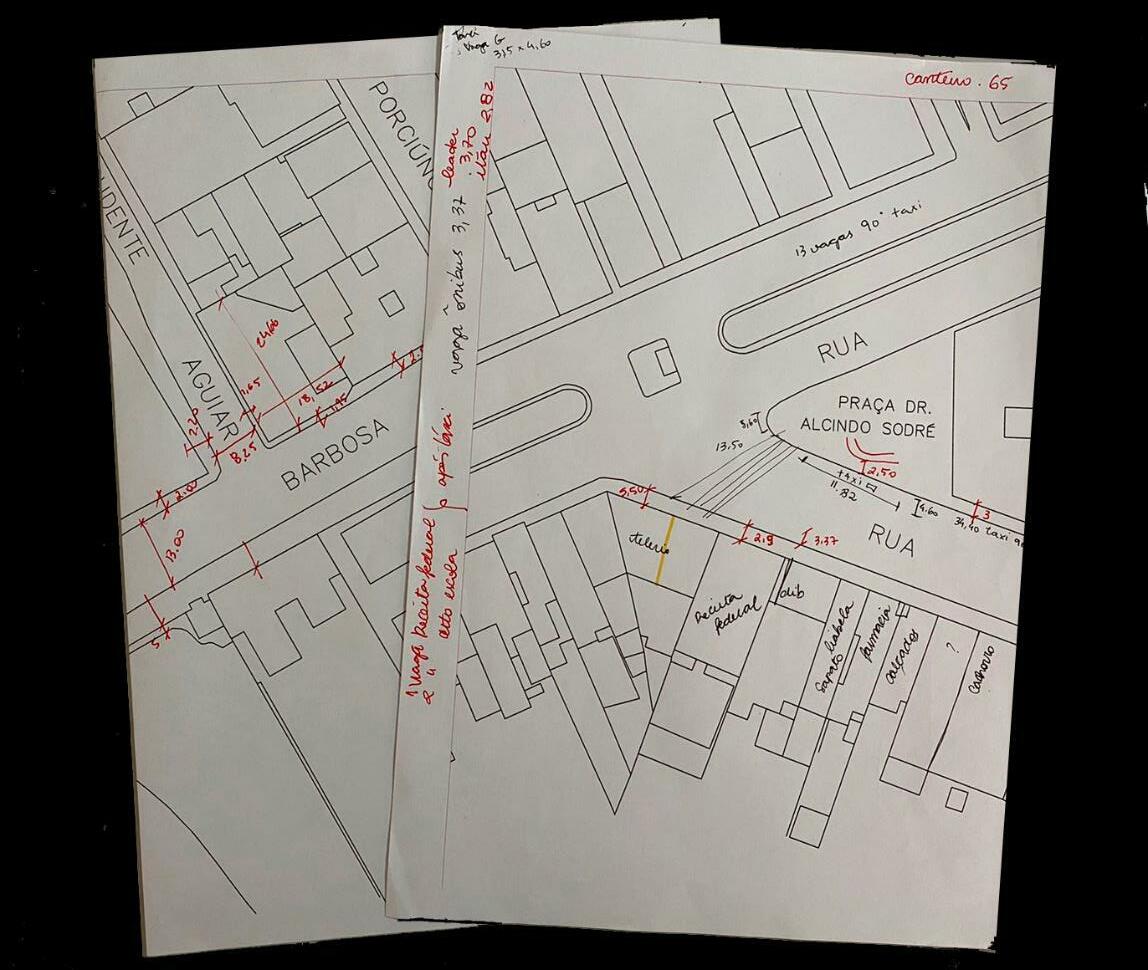 UDENTE
PORCIÚN
AGUIAR
BARBOSA
24,66
1,65
18,52
1,95
2,20
8,25
2,00
13.00
5
vaga G
3,5 x 4,60
leader
3,70
itáu 2,82
vaga ônibus 3,37
1 vaga Receita federal
2 " auto escola
após táxi
canteiro . 65
13 vagas 90° taxi
RUA
PRAÇA DR.
ALCINDO SODRÉ
13,50
2,50
taxi
11.82
4.60
3
34,40 taxi 9
RUA
5,50
2,9
3,37
Receita
federal
dib
Sapato Isabela
farmacia
calçados
?
cachorro